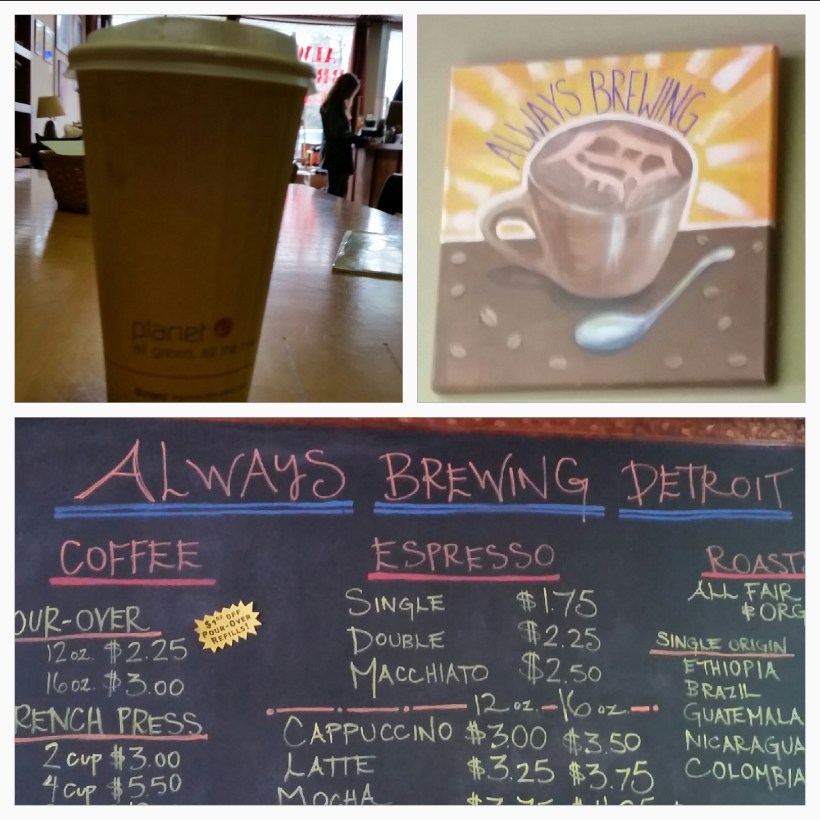 planet
all green, all the
ALWAYS BREWING
ALWAYS BREWING DETROIT
COFFEE
OUR-OVER
12 oz. $2.25
16 oz. $3.00
RENCH PRESS
2 cup $3.00
4 cup $5.50
$1.00 OFF
POUR-OVER
REFILLS!
ESPRESSO
SINGLE $1.75
DOUBLE $2.25
MACCHIATO $2.50
12 oz. — 16 oz.
CAPPUCCINO $3.00 $3.50
LATTE $3.25 $3.75
MOCHA
ROAST
ALL FAIR
& ORG
SINGLE ORIGIN
ETHIOPIA
BRAZIL
GUATEMALA
NICARAGUA
COLOMBIA